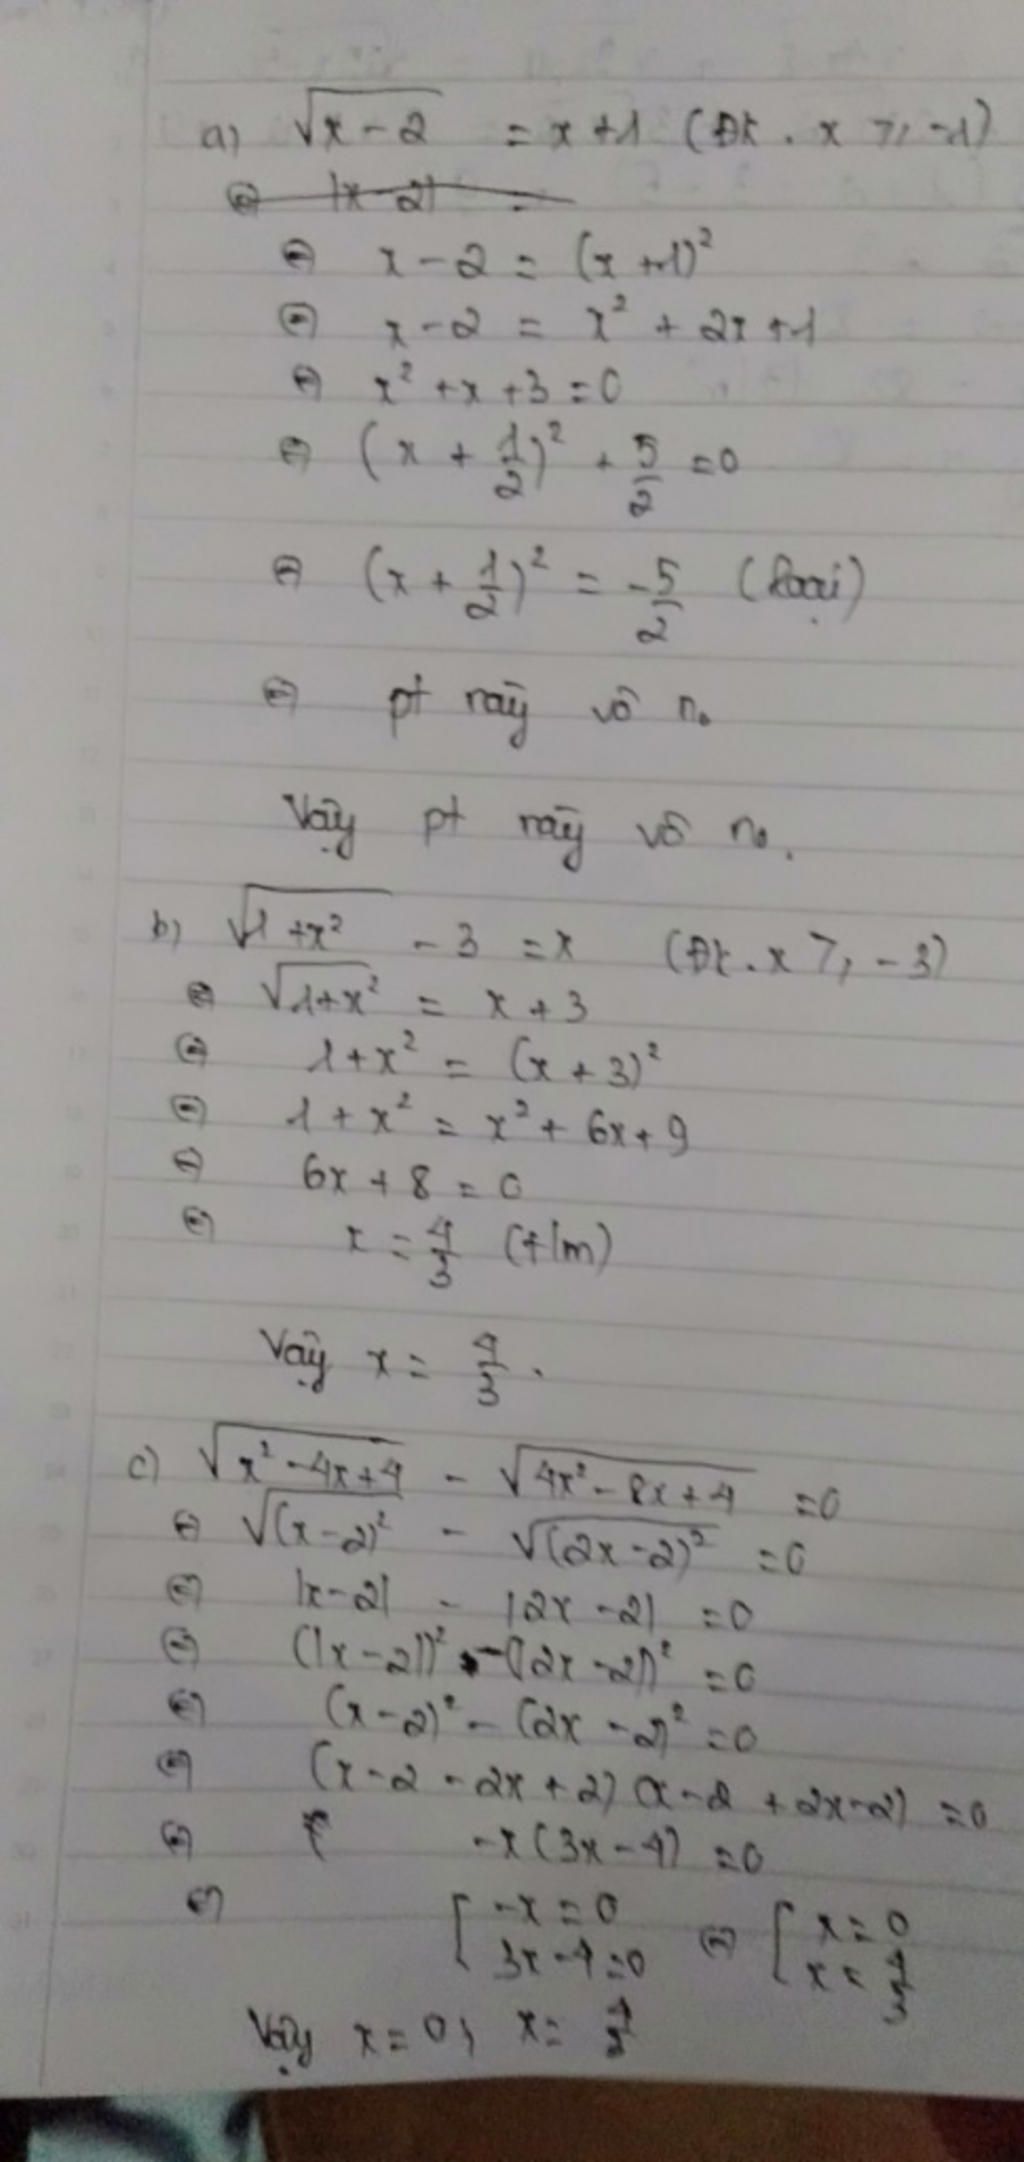 a) √(x-2) = x+1 (Đk. x ≥ -1)
⇔ |x-2| =
⇔ x-2 = (x+1)²
⇔ x-2 = x² + 2x+1
⇔ x²+x+3=0
⇔ (x + 1/2)² + 5/2 =0
⇔ (x + 1/2)² = -5/2 (loại)
⇔ pt này vô n₀
Vậy pt này vô n₀.
b) √(1+x²) - 3 = x (Đk. x ≥ -3)
⇔ √(1+x²) = x+3
⇔ 1+x² = (x+3)²
⇔ 1+x² = x²+6x+9
⇔ 6x+8=0
⇔ x = 4/3 (t/m)
Vậy x = 4/3.
c) √(x²-4x+4) - √(4x²-8x+4) =0
⇔ √(x-2)² - √(2x-2)² =0
⇔ |x-2| - |2x-2| =0
⇔ (|x-2|)² - (|2x-2|)² =0
⇔ (x-2)² - (2x-2)² =0
⇔ (x-2-2x+2)(x-2+2x-2) =0
⇔ -x(3x-4) =0
⇔ [ -x=0 ⇔ [ x=0
3x-4=0 x= 4/3
Vậy x=0, x=